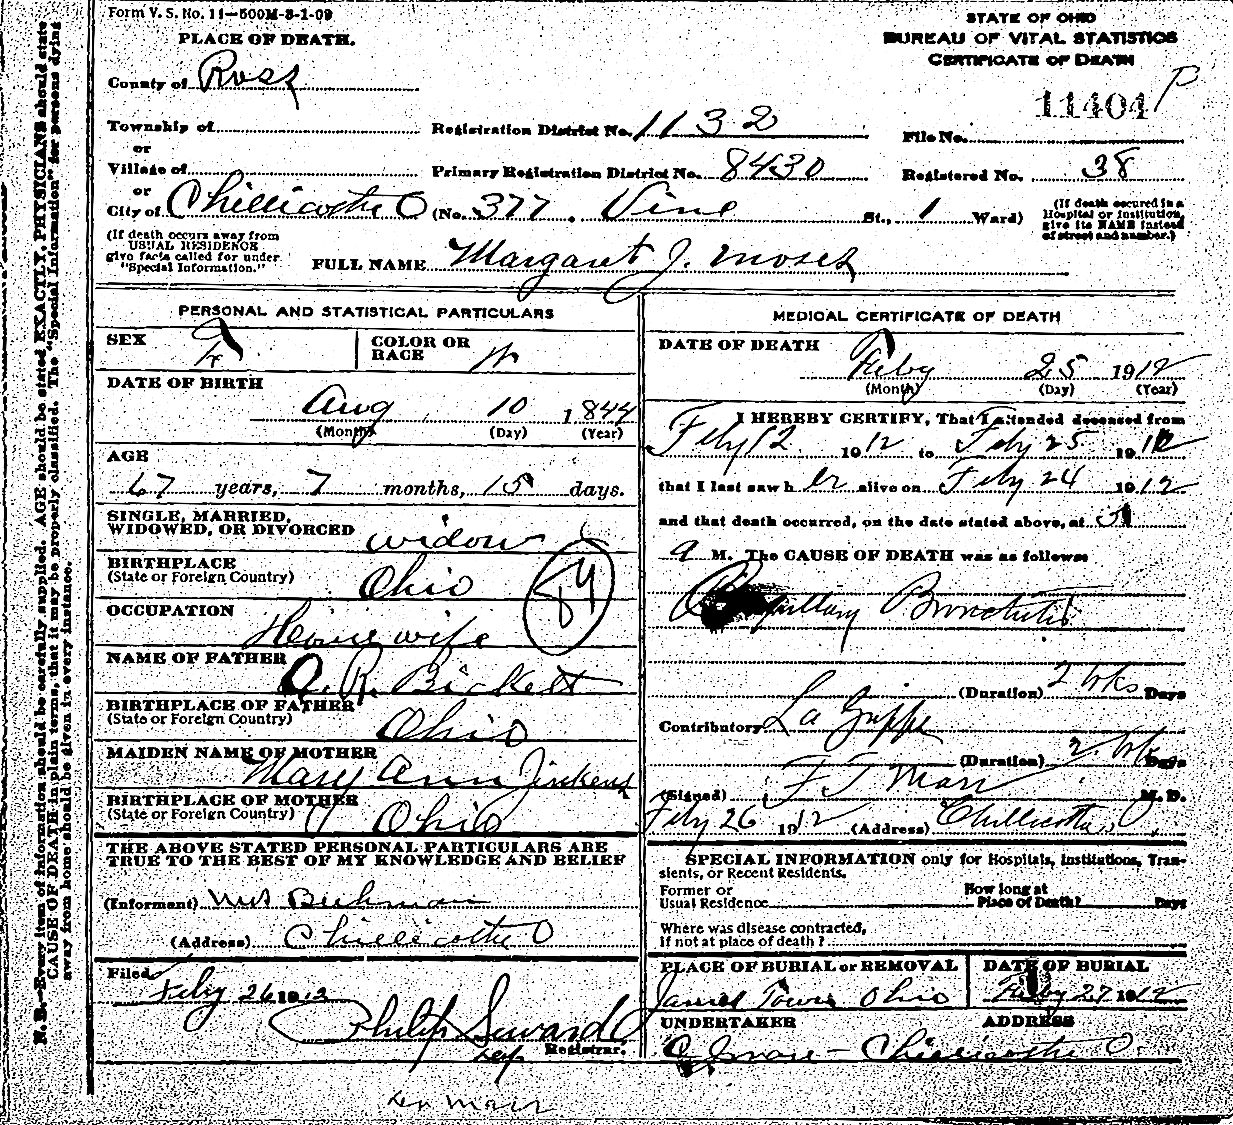 Form V. S. No. 11—500M-3-1-09
PLACE OF DEATH.
STATE OF OHIO
BUREAU OF VITAL STATISTICS
CERTIFICATE OF DEATH
County of Ross
11404
Township of
Registration District No. 1132
File No.
or
Village of
Primary Registration District No. 8430
Registered No. 38
or
City of Chillicothe O (No. 377, Vine St., 1 Ward)
(If death occured in a Hospital or Institution, give its NAME instead of street and number.)
(If death occurs away from USUAL RESIDENCE give facts called for under "Special Information."
FULL NAME Margaret J. Moses
PERSONAL AND STATISTICAL PARTICULARS
SEX F
COLOR OR RACE W
DATE OF BIRTH
Aug 10 1844
(Month) (Day) (Year)
AGE
67 years, 7 months, 15 days.
SINGLE, MARRIED,
WIDOWED, OR DIVORCED widow
BIRTHPLACE
(State or Foreign Country) Ohio
84
OCCUPATION
Housewife
NAME OF FATHER
A. R. Bickett
BIRTHPLACE OF FATHER
(State or Foreign Country) Ohio
MAIDEN NAME OF MOTHER
Mary Ann Jinkens
BIRTHPLACE OF MOTHER
(State or Foreign Country) Ohio
THE ABOVE STATED PERSONAL PARTICULARS ARE
TRUE TO THE BEST OF MY KNOWLEDGE AND BELIEF
(Informant) Mrs
(Address) Chillicothe O
Filed
Feby 26 1912
Philip Seward
Registrar.
MEDICAL CERTIFICATE OF DEATH
DATE OF DEATH
Feby 25 1912
(Month) (Day) (Year)
I HEREBY CERTIFY, That I attended deceased from
Feby 12 1912 to Feby 25 1912
that I last saw her alive on Feby 24 1912
and that death occurred, on the date stated above, at 5
a M. The CAUSE OF DEATH was as follows:
Capillary Bronchitis
(Duration) 2 wks Days
Contributory La Grippe
(Duration) 2 wks Days
(Signed) F T Marr M. D.
Feby 26 1912 (Address) Chillicothe, O,
SPECIAL INFORMATION only for Hospitals, Institutions, Tran-
sients, or Recent Residents.
Former or
Usual Residence
How long at
Place of Death? Days
Where was disease contracted,
If not at place of death?
PLACE OF BURIAL or REMOVAL
DATE OF BURIAL
James Town Ohio
Feby 27 1912
UNDERTAKER
ADDRESS
Chillicothe O.
N. B.—Every item of information should be carefully supplied. AGE should be stated EXACTLY. PHYSICIANS should state
CAUSE OF DEATH in plain terms, that it may be properly classified. The "Special Information" for persons dying
away from home should be given in every instance.